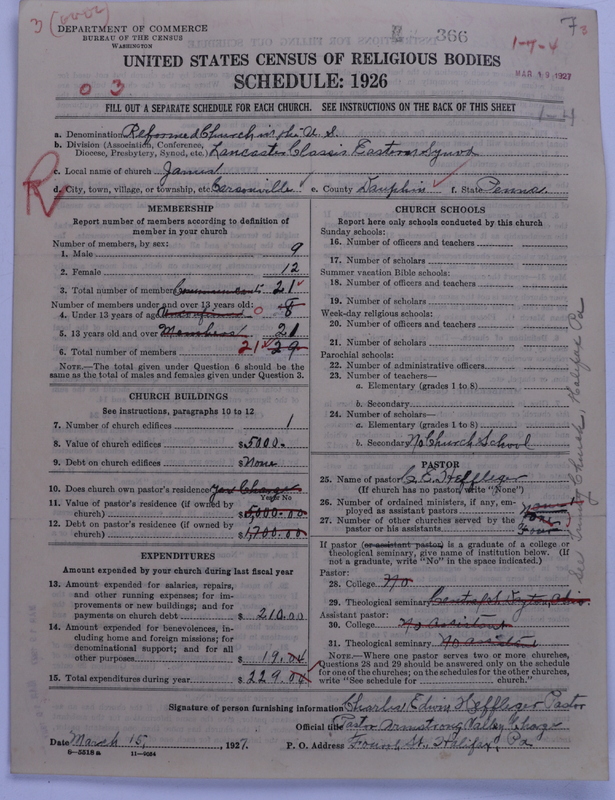 3 (6002)
DEPARTMENT OF COMMERCE
BUREAU OF THE CENSUS
WASHINGTON
366
7 3
1-7-4
MAR 19 1927
UNITED STATES CENSUS OF RELIGIOUS BODIES
SCHEDULE: 1926
0 3
FILL OUT A SEPARATE SCHEDULE FOR EACH CHURCH. SEE INSTRUCTIONS ON THE BACK OF THIS SHEET
1-4
a. Denomination Reformed Church in the U. S.
b. Division (Association, Conference, Diocese, Presbytery, Synod, etc.) Lancaster Classis Eastern Synod
c. Local name of church James
R
d. City, town, village, or township, etc. Carsonville e. County Dauphin f. State Penna.
MEMBERSHIP
Report number of members according to definition of
member in your church
Number of members, by sex:
1. Male 9
2. Female 12
3. Total number of members Communicant 21
Number of members under and over 13 years old:
4. Under 13 years of age Unconfirmed 0 8
5. 13 years old and over Members 21
6. Total number of members 21 29
NOTE.—The total given under Question 6 should be
same as the total of males and females given under Question 3.
CHURCH BUILDINGS
See instructions, paragraphs 10 to 12
7. Number of church edifices 1
8. Value of church edifices $5000.
9. Debt on church edifices $None
10. Does church own pastor's residence? Yes Charge
Yes or No
11. Value of pastor's residence (if owned by
church) $5000.00
12. Debt on pastor's residence (if owned by
church) $1,700.00
EXPENDITURES
Amount expended by your church during last fiscal year
13. Amount expended for salaries, repairs,
and other running expenses; for im-
provements or new buildings; and for
payments on church debt $ 210.00
14. Amount expended for benevolences, in-
cluding home and foreign missions; for
denominational support; and for all
other purposes $ 19.04
15. Total expenditures during year $ 229.04
CHURCH SCHOOLS
Report here only schools conducted by this church
Sunday schools:
16. Number of officers and teachers
17. Number of scholars
Summer vacation Bible schools:
18. Number of officers and teachers
19. Number of scholars
Week-day religious schools:
20. Number of officers and teachers
21. Number of scholars
Parochial schools:
22. Number of administrative officers
23. Number of teachers—
a. Elementary (grades 1 to 8)
b. Secondary
24. Number of scholars—
a. Elementary (grades 1 to 8)
b. Secondary No Church School
PASTOR
25. Name of pastor C. E. Heffleger
(If church has no pastor, write "None")
26. Number of ordained ministers, if any, em-
ployed as assistant pastors
27. Number of other churches served by the
pastor or his assistant Four
If pastor (or assistant pastor) is a graduate of a college or
theological seminary, give name of institution below. (If
not a graduate, write "No" in the space indicated.)
Pastor:
28. College No
29. Theological seminary Central S. Dayton, Ohio.
Assistant pastor:
30. College No assistant
31. Theological seminary No assistant
NOTE.—Where one pastor serves two or more churches,
Questions 28 and 29 should be answered only on the schedule
for one of the churches; on the schedules for the other churches,
write "See schedule for church."
See Trinity Church, Halifax Pa
Signature of person furnishing information Charles Edwin Heffleger Pastor
Official title Pastor Armstrong Valley Charge
Date March 15, 1927. P. O. Address Fourth St., Halifax, Pa
6—5518 a 11—9034